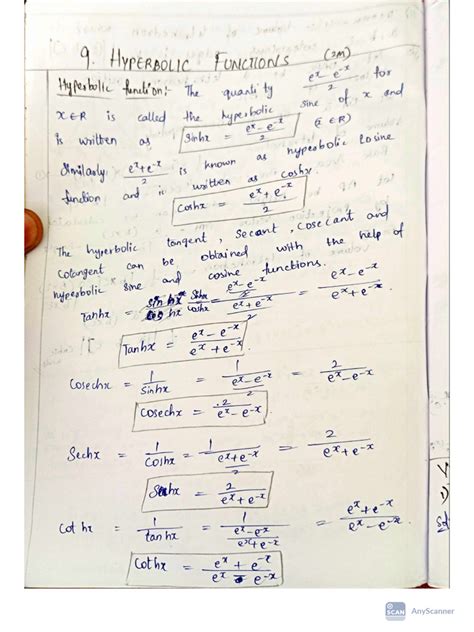 9. HYPERBOLIC FUNCTIONS (2M)
Hyperbolic function:- The quantity (e^x - e^-x)/2 for
x∈R is called the hyperbolic sine of x and
is written as sinhx = (e^x - e^-x)/2 (x∈R)
Similarly (e^x + e^-x)/2 is known as hyperbolic cosine
function and is written as coshx.
Coshx = (e^x + e^-x)/2
The hyperbolic tangent, Secant, Cosecant and
Cotangent can be obtained with the help of
hyperbolic sine and cosine functions.
Tanhx = sinhx/coshx = ((e^x - e^-x)/2)/((e^x + e^-x)/2) = (e^x - e^-x)/(e^x + e^-x)
Tanhx = (e^x - e^-x)/(e^x + e^-x)
Cosechx = 1/sinhx = 1/((e^x - e^-x)/2) = 2/(e^x - e^-x)
Cosechx = 2/(e^x - e^-x)
Sechx = 1/Coshx = 1/((e^x + e^-x)/2) = 2/(e^x + e^-x)
Sechx = 2/(e^x + e^-x)
Cothx = 1/tanhx = 1/((e^x - e^-x)/(e^x + e^-x)) = (e^x + e^-x)/(e^x - e^-x)
Cothx = (e^x + e^-x)/(e^x - e^-x)
SCAN AnyScanner